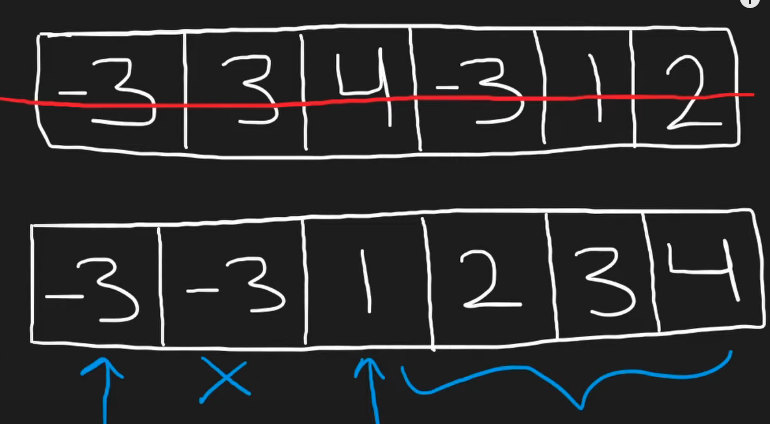 -3 3 4 -3 1 2
-3 -3 1 2 3 4